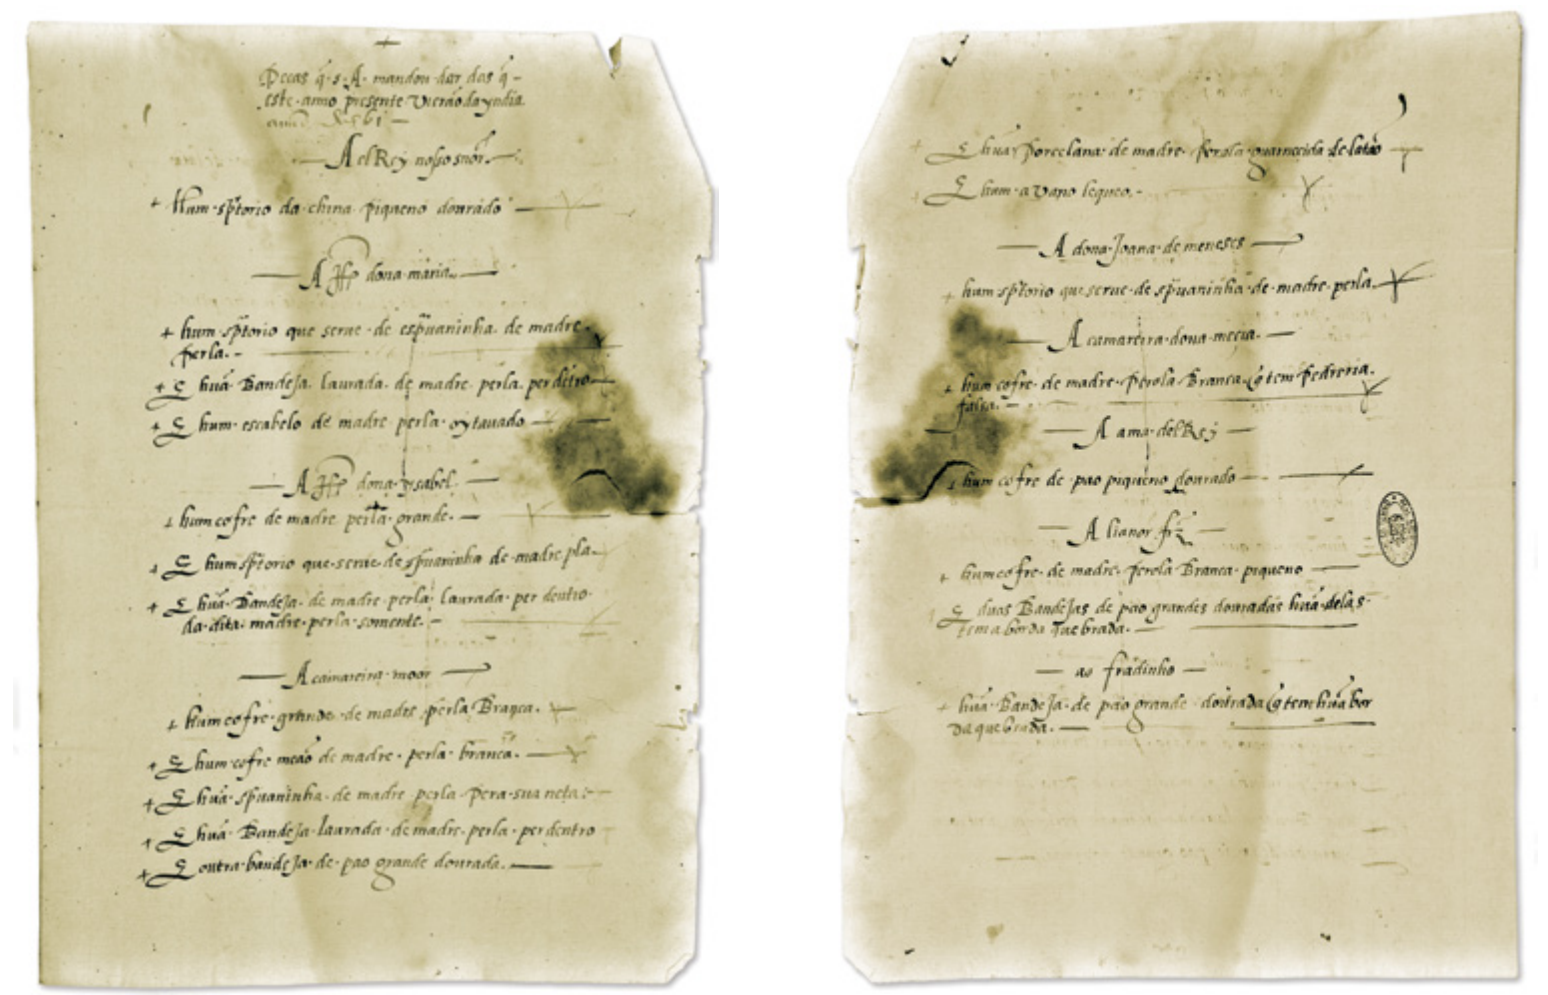 Pecas q̃ s. A. mandou dar das q̃
este anno presente vierão da yndia
A el Rey nosso snõr
hum sp̃torio da china piqueno dourado
A Iff.ª dona maria
hum sp̃torio que serue de esp̃uaninha de madre
perla.
E huã Bandeja laurada de madre perla per dẽtro
E hum escabelo de madre perla oytauado
A Iff.ª dona ysabel
hum cofre de madre perla grande.
E hum sp̃torio que serue de sp̃uaninha de madre pla.
E huã Bandeja de madre perla laurada per dentro
da dita madre perla somente.
A camareira moor
hum cofre grande de madre perla Branca.
E hum cofre meão de madre perla branca.
E huã sp̃uaninha de madre perla pera sua neta
E huã Bandeja laurada de madre perla per dentro
E outra bandeja de pao grande dourada.
E huã porcelana de madre perola guarnecida de latão
E hum avano lequeo.
A dona Joana de meneses
hum sp̃torio que serue de sp̃uaninha de madre perla
A camareira dona mecia.
hum cofre de madre perola Branca q̃ tem pedreria
falsa.
A ama del Rey
hum cofre de pao piqueno dourado
A lianor frz̃
hum cofre de madre perola Branca piqueno
E duas Bandejas de pao grandes douradas huã delas
tem a borda quebrada.
ao fradinho
huã Bandeja de pao grande dourada q̃ tem huã bor
da quebrada.